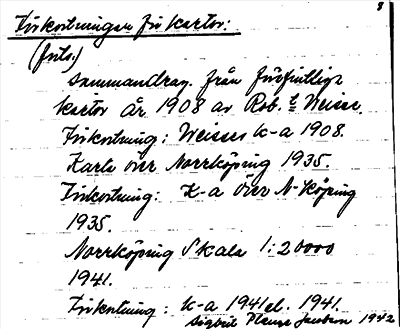 8
Förkortningar för kartor:
(forts.)
Sammandrag från förfintliga
kartor år 1908 av Rob. Weisse.
Förkortning: Weisses k-a 1908.
Karta över Norrköping 1935.
Förkortning: K-a över N-köping
1935.
Norrköping Skala 1:20000
1941.
Förkortning: k-a 1941 el. 1941.
1942